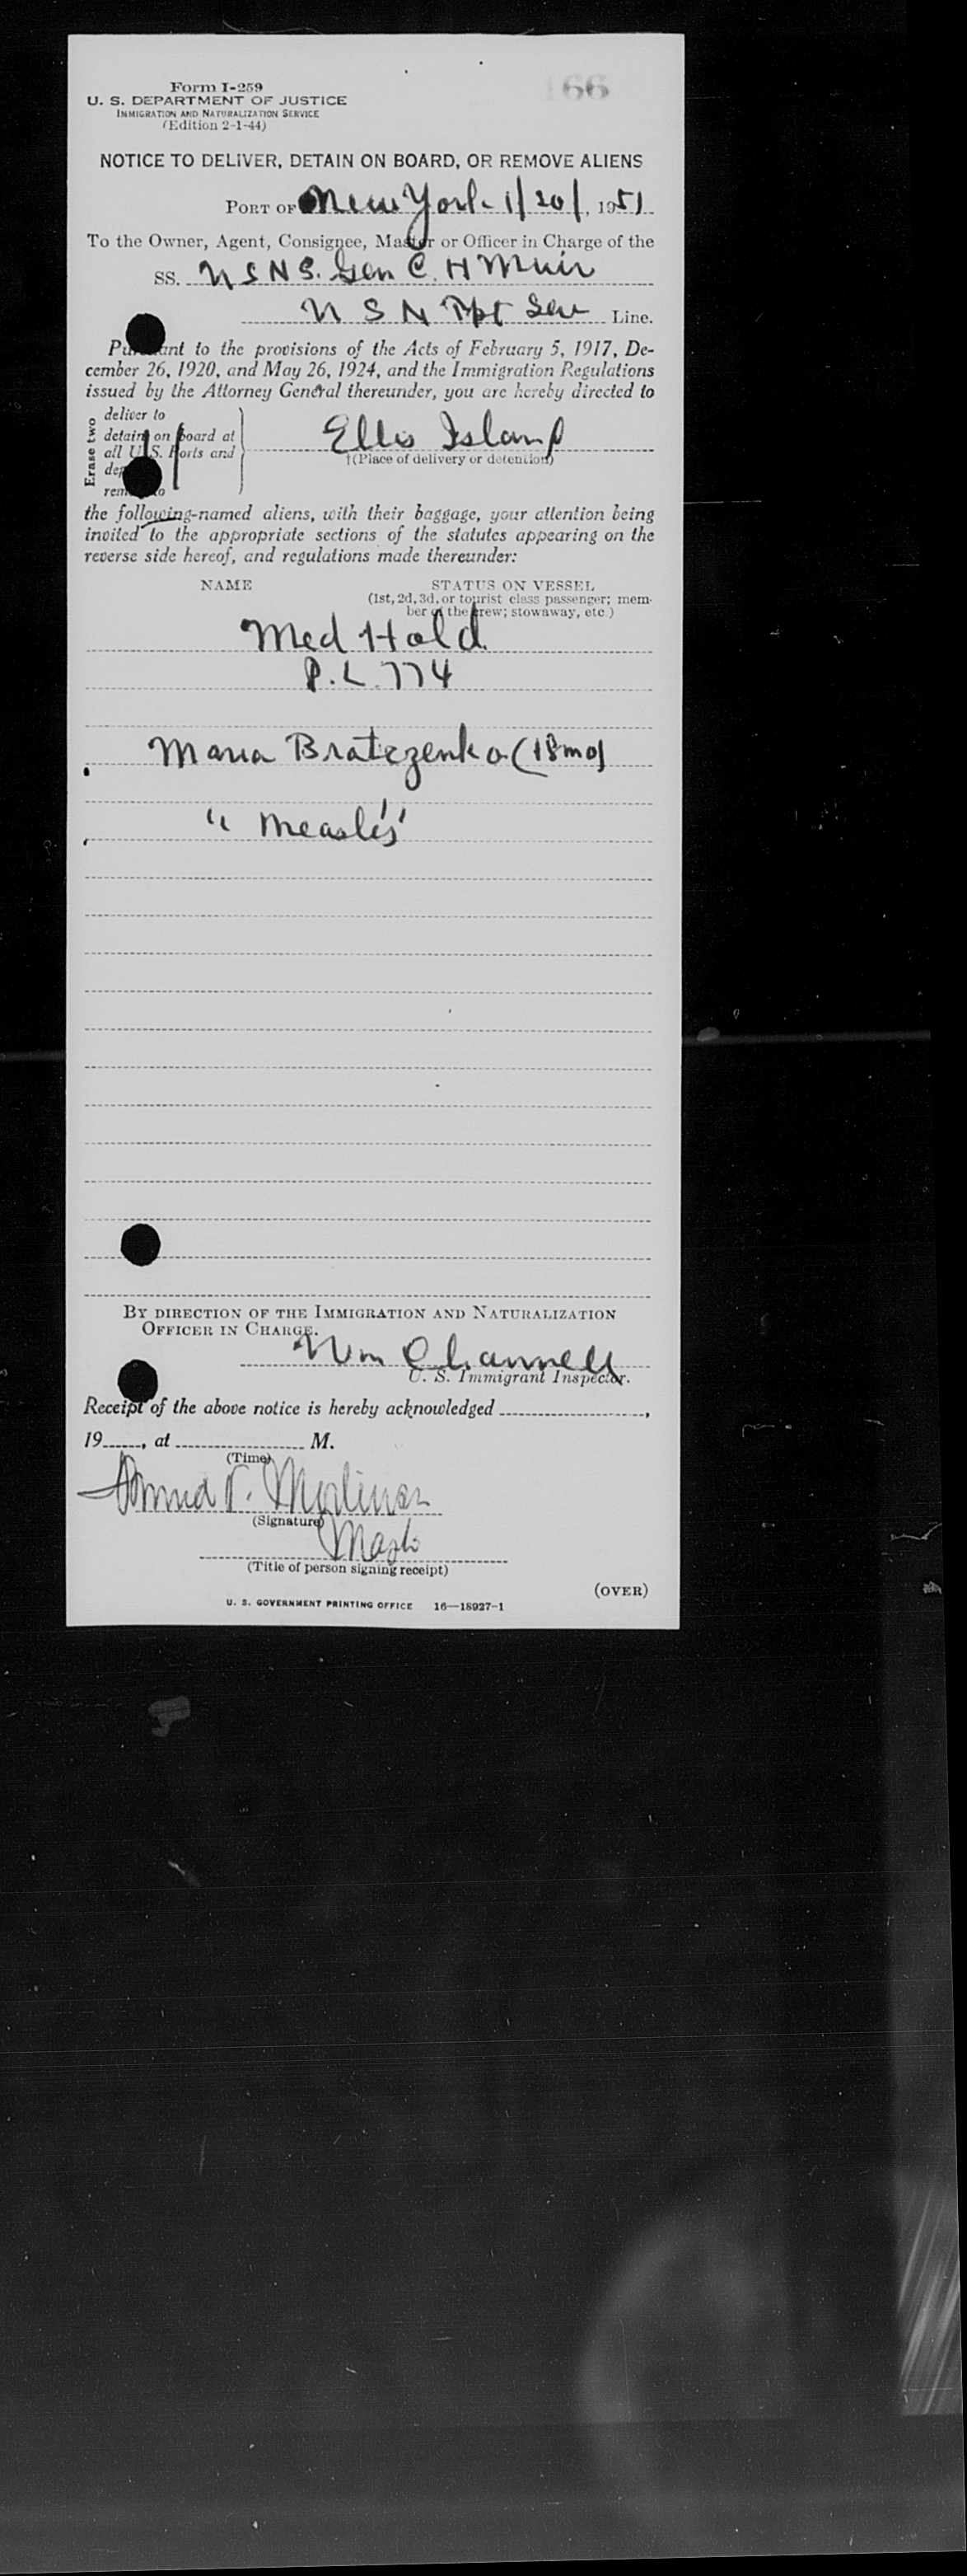 66
Form I-259
U. S. DEPARTMENT OF JUSTICE
IMMIGRATION AND NATURALIZATION SERVICE
(Edition 2-1-44)
NOTICE TO DELIVER, DETAIN ON BOARD, OR REMOVE ALIENS
PORT OF New York 1/20/, 1951
To the Owner, Agent, Consignee, Master or Officer in Charge of the
SS. USNS. Gen C. H Muir
U S N Tpt Serv Line.
Pursuant to the provisions of the Acts of February 5, 1917, De-
cember 26, 1920, and May 26, 1924, and the Immigration Regulations
issued by the Attorney General thereunder, you are hereby directed to
Erase two
deliver to
detain on board at
all U.S. Ports and
remove to
Ellis Island
†(Place of delivery or detention)
the following-named aliens, with their baggage, your attention being
invited to the appropriate sections of the statutes appearing on the
reverse side hereof, and regulations made thereunder:
NAME STATUS ON VESSEL
(1st, 2d, 3d, or tourist class passenger; mem-
ber of the crew; stowaway, etc.)
Med Hold
P.L. 774
Maria Bratczenko (18mo)
"Measles"
BY DIRECTION OF THE IMMIGRATION AND NATURALIZATION
OFFICER IN CHARGE.
Wm Channell
U. S. Immigrant Inspector.
Receipt of the above notice is hereby acknowledged ,
19 , at M.
(Time)
(Signature)
(Title of person signing receipt)
(OVER)
U. S. GOVERNMENT PRINTING OFFICE 16—18927-1